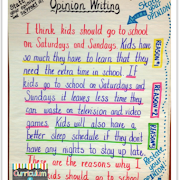 Opinion Writing
State
OPINION
I think kids should go to school
on Saturdays and Sundays. Kids have
so much they have to learn that they
need the extra time in school. If
kids go to school on Saturdays and
Sundays it leaves less time they
can waste on television and video
games. Kids will also have a
better sleep schedule if they don't
have any nights to stay up late.
These are the reasons why I
kids should go to school
REASON 1
REASON 2
REASON
Restate
Curriculum